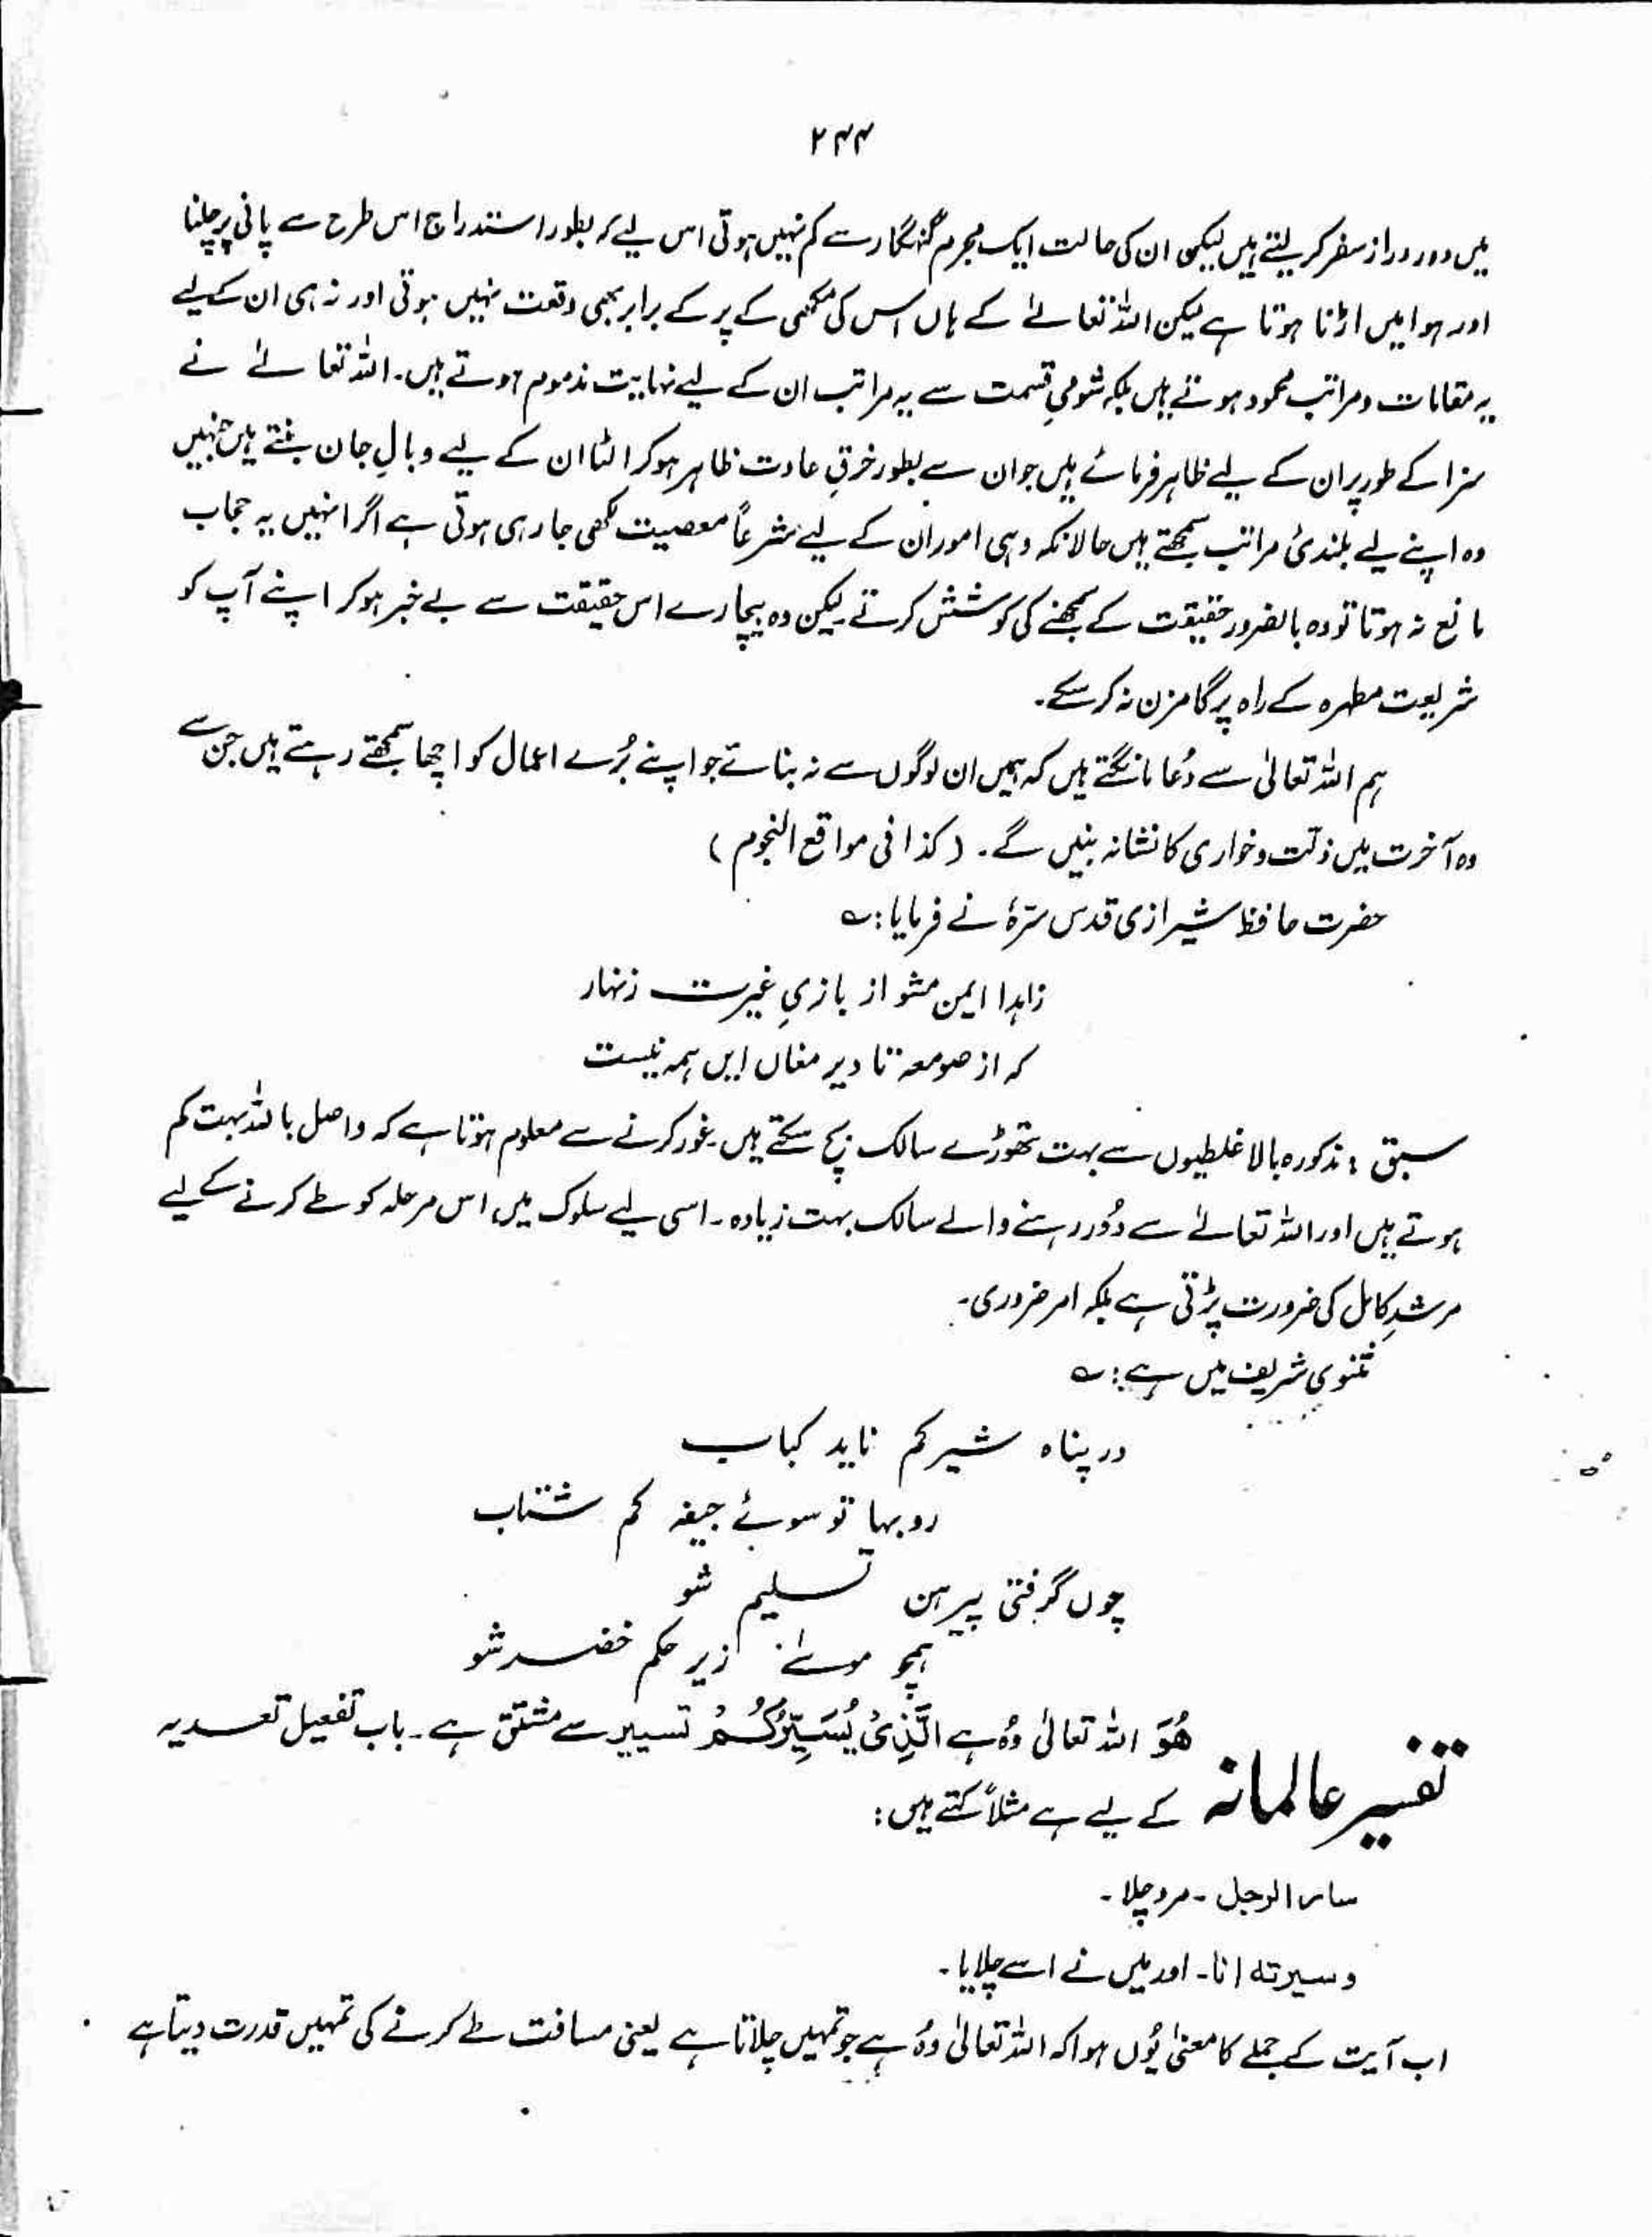 ۲۴۴
میں دور دراز سفر کر لیتے ہیں لیکن ان کی حالت ایک مجرم گنہگار سے کم نہیں ہوتی اس لیے کہ بطور استدراج اس طرح سے پانی پر چلنا
اور ہوا میں اڑنا ہوتا ہے لیکن اللہ تعالےٰ کے ہاں اس کی مکھی کے پر کے برابر بھی وقعت نہیں ہوتی اور نہ ہی ان کے لیے
یہ مقامات و مراتب محمود ہوتے ہیں بلکہ شومیِ قسمت سے یہ مراتب ان کے لیے نہایت مذموم ہوتے ہیں۔ اللہ تعالےٰ نے
سزا کے طور پر ان کے لیے ظاہر فرمائے ہیں جو ان سے بطور خرقِ عادت ظاہر ہو کر الٹا ان کے لیے وبالِ جان بنتے ہیں جنہیں
وہ اپنے لیے بلندیٔ مراتب سمجھتے ہیں حالانکہ وہی امور ان کے لیے شرعاً معصیت لکھی جا رہی ہوتی ہے اگر انہیں یہ حجاب
مانع نہ ہوتا تو وہ بالضرور حقیقت کے سمجھنے کی کوشش کرتے لیکن وہ بیچارے اس حقیقت سے بے خبر ہو کر اپنے آپ کو
شریعت مطہرہ کے راہ پر گامزن نہ کر سکے۔
ہم اللہ تعالیٰ سے دُعا مانگتے ہیں کہ ہمیں ان لوگوں سے نہ بنائے جو اپنے بُرے اعمال کو اچھا سمجھتے رہتے ہیں جن سے
وہ آخرت میں ذلّت و خواری کا نشانہ بنیں گے۔ (کذا فی مواقع النجوم)
حضرت حافظ شیرازی قدس سرّہٗ نے فرمایا: ؎
زاہدا ایمن مشو از بازیِ غیرت زنہار
کہ از صومعہ تا دیر مغاں ایں ہمہ نیست
سبق : مذکورہ بالا غلطیوں سے بہت تھوڑے سالک بچ سکتے ہیں۔ غور کرنے سے معلوم ہوتا ہے کہ واصل باللہ بہت کم
ہوتے ہیں اور اللہ تعالےٰ سے دُور رہنے والے سالک بہت زیادہ۔ اسی لیے سلوک میں اس مرحلہ کو طے کرنے کے لیے
مرشدِ کامل کی ضرورت پڑتی ہے بلکہ امر ضروری۔
مثنوی شریف میں ہے : ؎
در پناہ شیر کم ناید کباب
روبہا تو سوئے جیفہ کم شتاب
چوں گرفتی پیر ہن تسلیم شو
ہمچو موسےٰ زیر حکم خضر شو
تفسیر عالمانہ هُوَ اللہ تعالیٰ وُہ ہے الَّذِیْ یُسَیِّرُکُمْ تسییر سے مشتق ہے۔ باب تفعیل تعدیہ
کے لیے ہے مثلاً کہتے ہیں :
سار الرجل۔ مرد چلا۔
و سیرته انا۔ اور میں نے اسے چلایا۔
اب آیت کے جملے کا معنیٰ یُوں ہوا کہ اللہ تعالیٰ وُہ ہے جو تمہیں چلاتا ہے یعنی مسافت طے کرنے کی تمہیں قدرت دیتا ہے